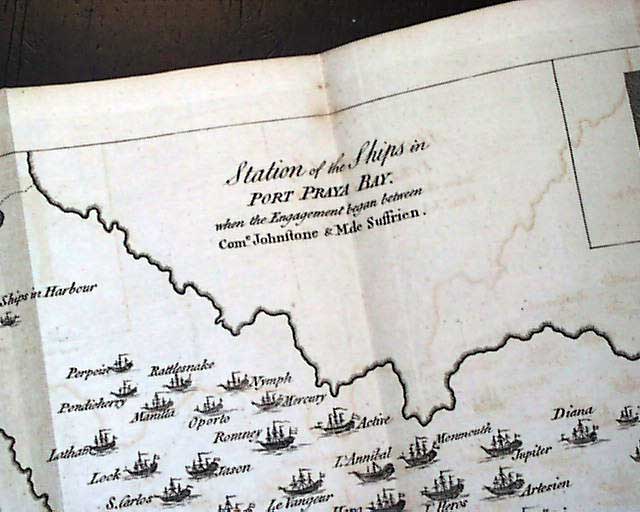 Station of the Ships in
PORT PRAYA BAY.
when the Engagement began between
Com.e Johnſtone & M.de Suffrien.
Ships in Harbour
Perpoix
Rattlesnake
Nymph
Pondicherry
Manilla
Oporto
Mercury
Latham
Romney
Active
Diana
Lock
Jason
L'Annibal
Monmouth
Jupiter
S. Carlos
Le Vangeur
Hero
L'Heros
Artesien